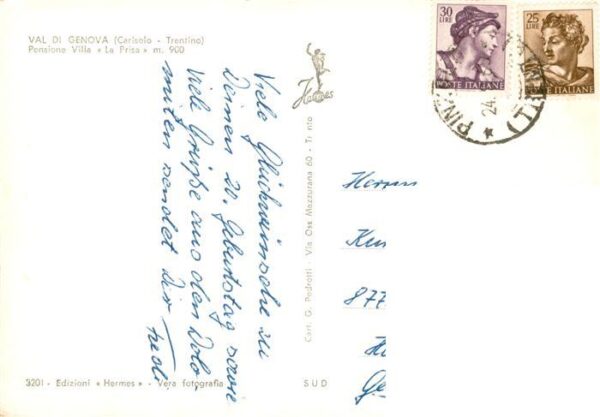 VAL DI GENOVA (Carisolo - Trentino)
Pensione Villa « La Prisa » m. 900
30
LIRE
POSTE ITALIANE
25
LIRE
POSTE ITALIANE
PINZ
24.
Hermes
Viele Glückwünsche zu
Deinem 20. Geburtstag sowie
Viele Grüße aus den Dolo-
miten sendet Dir
Cart. G. Pedrotti - Via Oss Mazzurana 60 - Trento
Herrn
877
3201 - Edizioni « Hermes » - Vera fotografia
SUD